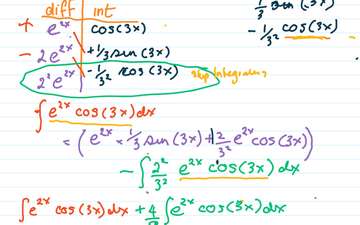 diff int
+ e^{2x} cos(3x)
- 2e^{2x} +1/3 sin(3x)
2² e^{2x} -1/3² cos(3x) stop Integrating
1/3 sin(3x)
- 1/3² cos(3x)
∫e^{2x} cos(3x)dx
= (e^{2x} · 1/3 sin(3x) + 2/3² e^{2x} cos(3x))
- ∫ 2²/3² e^{2x} cos(3x) dx
∫e^{2x} cos(3x)dx + 4/ ∫e^{2x} cos(3x)dx